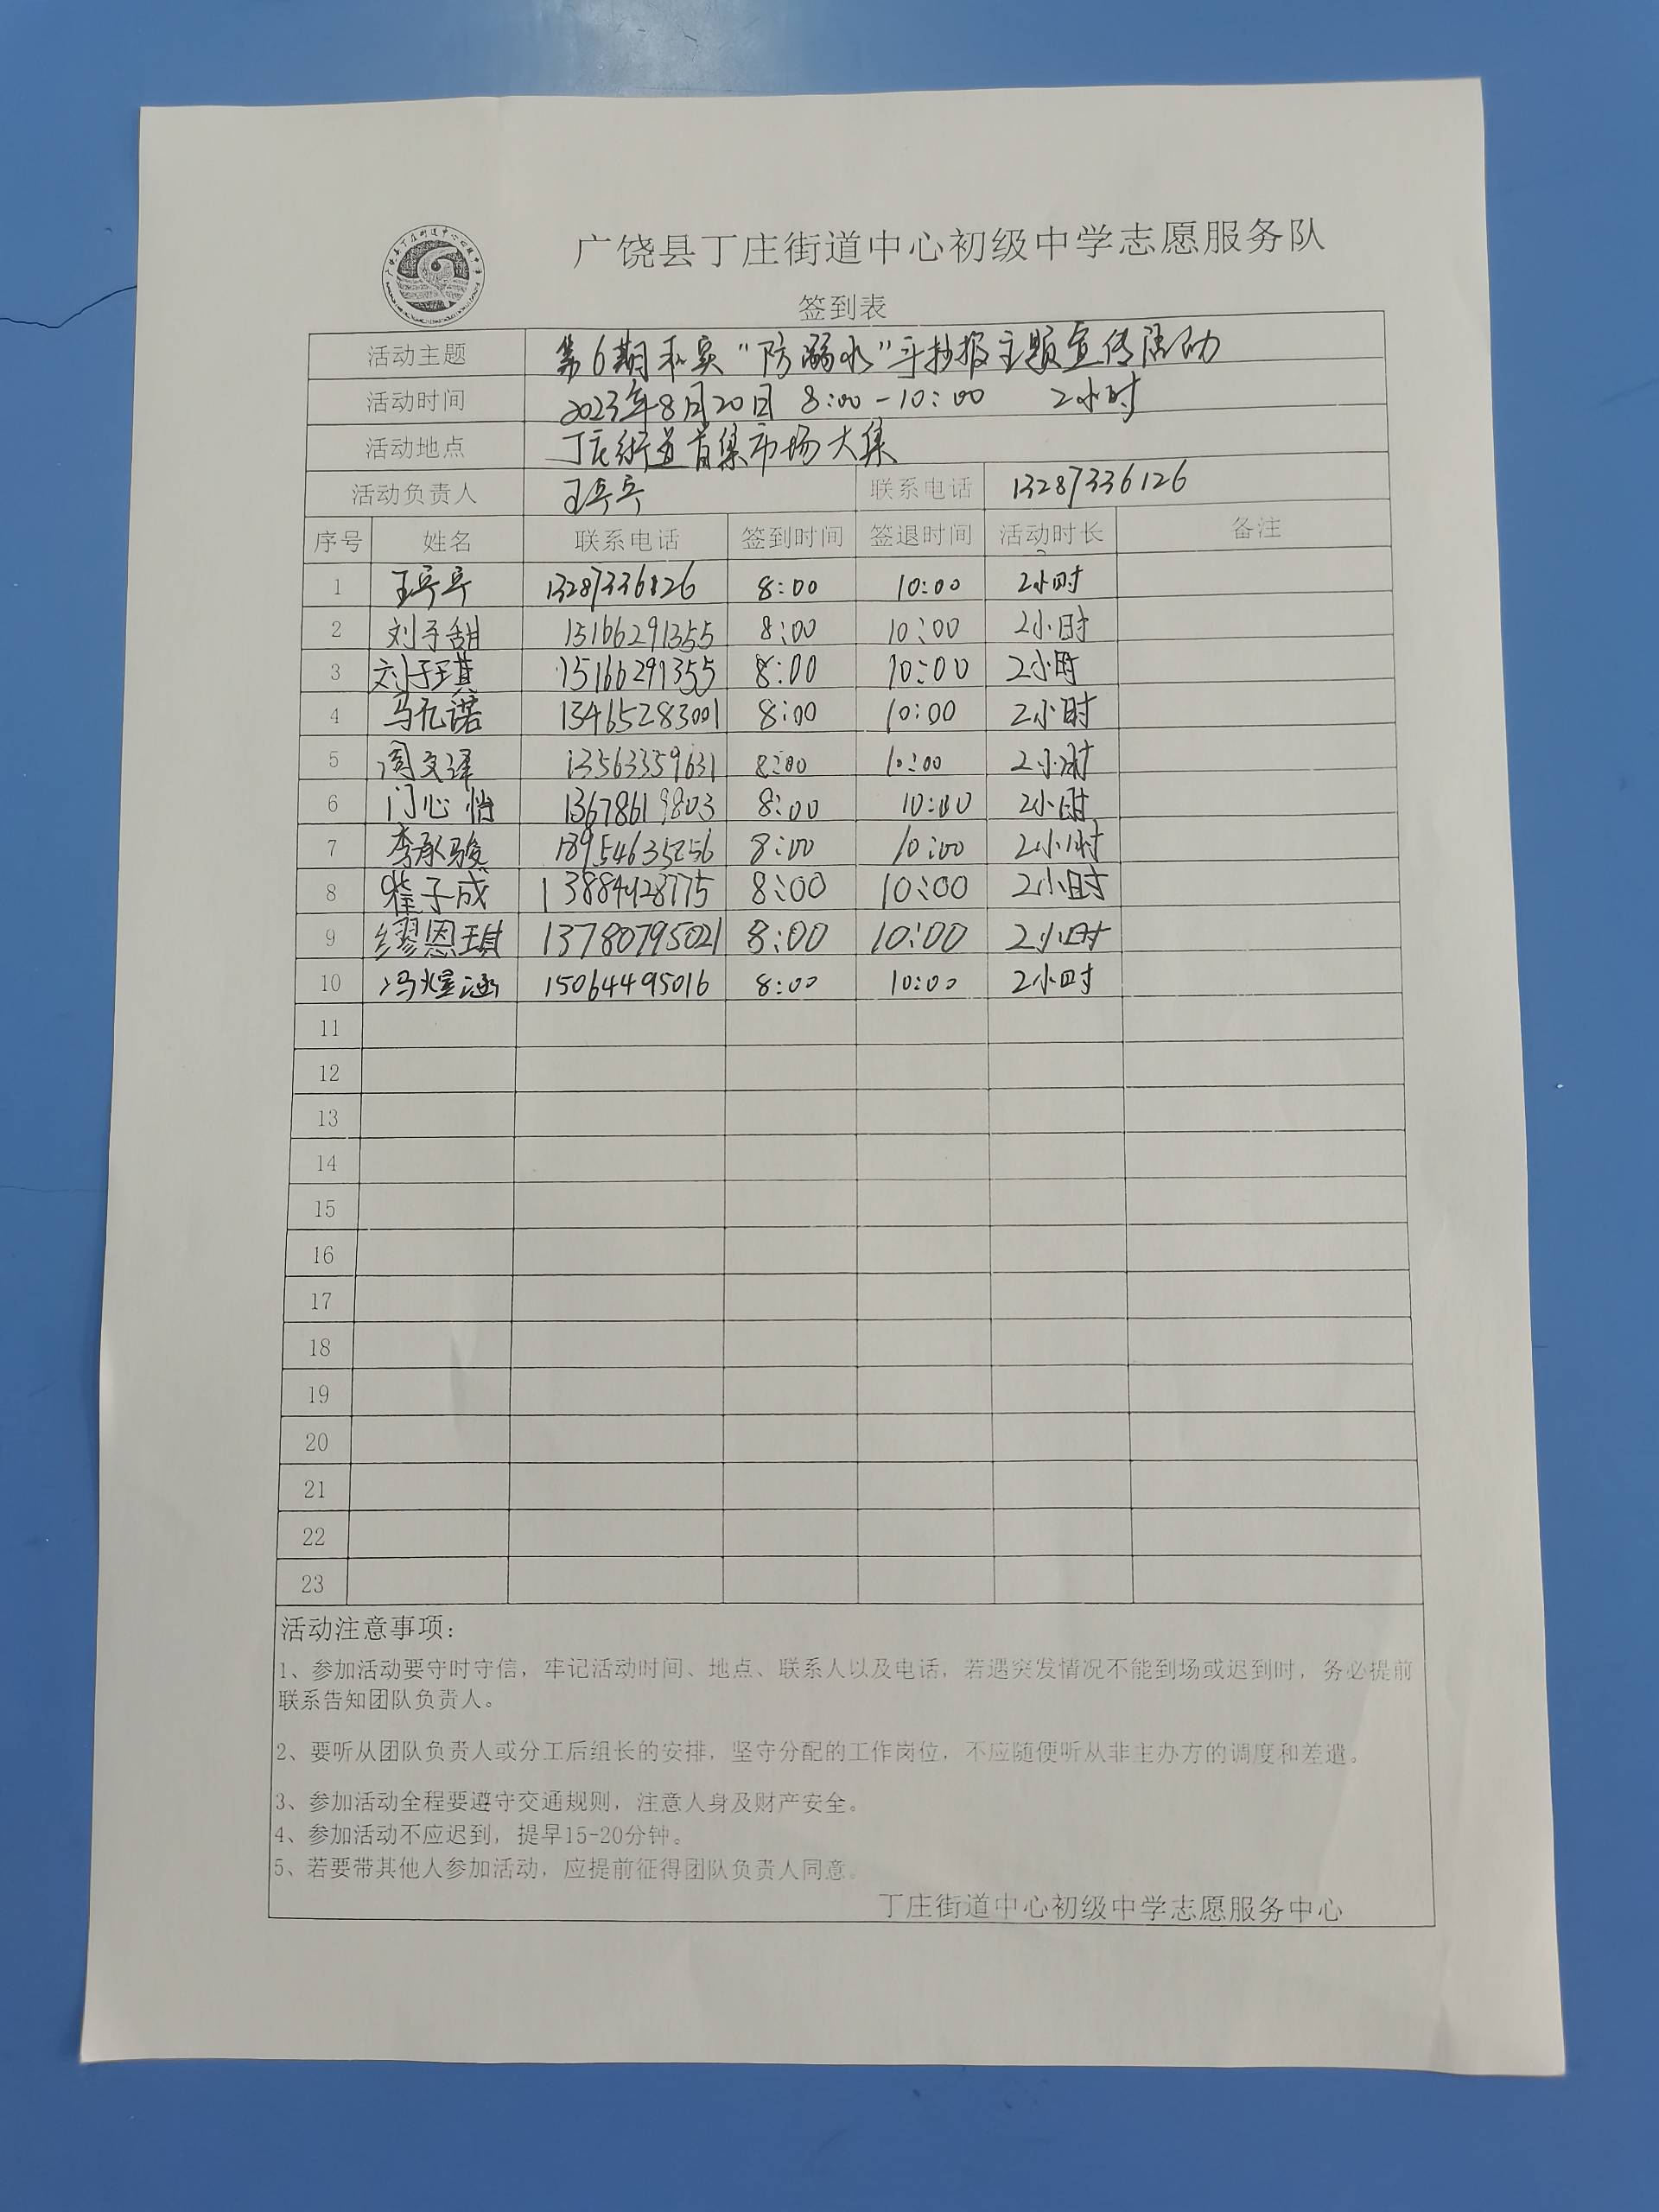 广饶县丁庄街道中心初级中学志愿服务队
签到表
活动主题 第6期和实“防溺水”手抄报主题宣传活动
活动时间 2023年8月20日 8:00-10:00 2小时
活动地点 丁庄街道首集市场大集
活动负责人 王亭亭 联系电话 13287336126
序号 姓名 联系电话 签到时间 签退时间 活动时长 备注
1 王亭亭 13287336126 8:00 10:00 2小时
2 刘子甜 15166291355 8:00 10:00 2小时
3 刘子琪 15166291355 8:00 10:00 2小时
4 马亿诺 13465283001 8:00 10:00 2小时
5 周文泽 13563359631 8:00 10:00 2小时
6 门心怡 13678619803 8:00 10:00 2小时
7 李承骏 18954635256 8:00 10:00 2小时
8 子成 13884928775 8:00 10:00 2小时
9 缪恩琪 13780795021 8:00 10:00 2小时
10 冯煜涵 15064495016 8:00 10:00 2小时
11
12
13
14
15
16
17
18
19
20
21
22
23
活动注意事项：
1、参加活动要守时守信，牢记活动时间、地点、联系人以及电话，若遇突发情况不能到场或迟到时，务必提前
联系告知团队负责人。
2、要听从团队负责人或分工后组长的安排，坚守分配的工作岗位，不应随便听从非主办方的调度和差遣。
3、参加活动全程要遵守交通规则，注意人身及财产安全。
4、参加活动不应迟到，提早15-20分钟。
5、若要带其他人参加活动，应提前征得团队负责人同意。
丁庄街道中心初级中学志愿服务中心